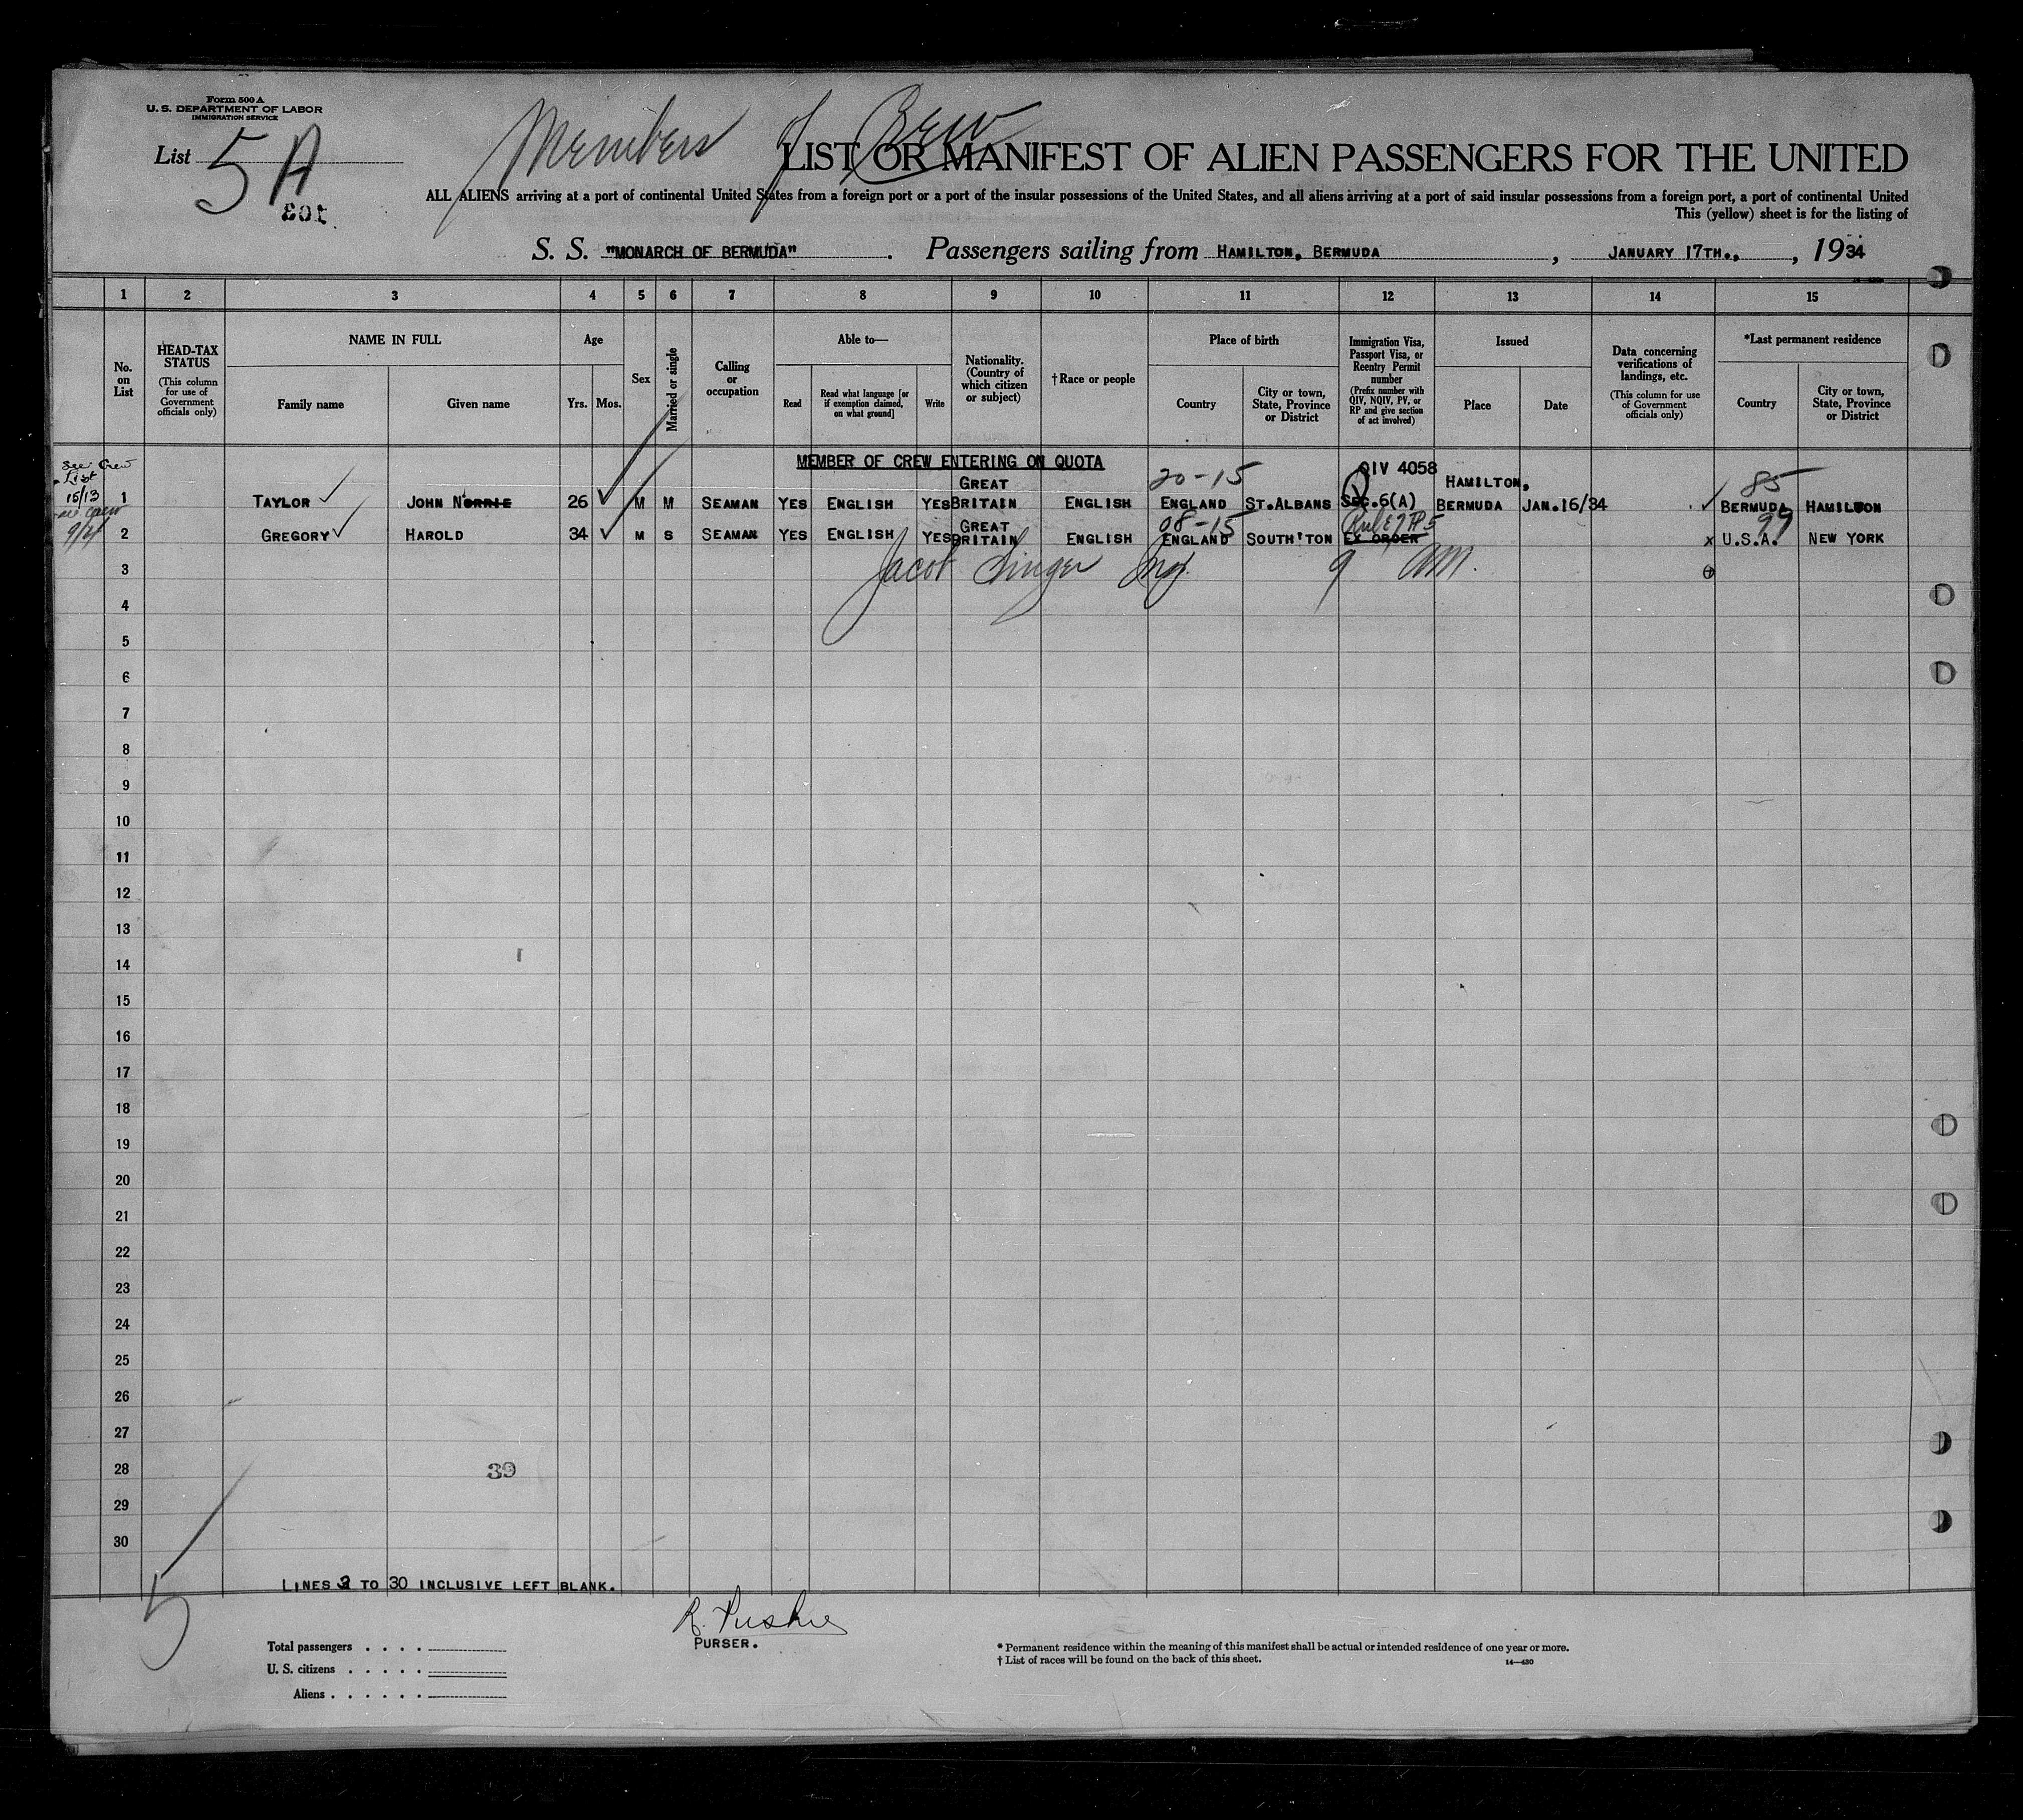 Form 500 A
U. S. DEPARTMENT OF LABOR
IMMIGRATION SERVICE
List 5 A
103
Members of Crew
LIST OR MANIFEST OF ALIEN PASSENGERS FOR THE UNITED
ALL ALIENS arriving at a port of continental United States from a foreign port or a port of the insular possessions of the United States, and all aliens arriving at a port of said insular possessions from a foreign port, a port of continental United
This (yellow) sheet is for the listing of
S. S. "MONARCH OF BERMUDA". Passengers sailing from HAMILTON, BERMUDA, JANUARY 17TH., , 1934
1 2 3 4 5 6 7 8 9 10 11 12 13 14 15
No. on List
HEAD-TAX STATUS (This column for use of Government officials only)
NAME IN FULL
Family name
Given name
Age
Yrs. Mos.
Sex
Married or single
Calling or occupation
Able to—
Read
Read what language [or if exemption claimed, on what ground]
Write
Nationality. (Country of which citizen or subject)
†Race or people
Place of birth
Country
City or town, State, Province or District
Immigration Visa, Passport Visa, or Reentry Permit number (Prefix number with QIV, NQIV, PV, or RP and give section of act involved)
Issued
Place
Date
Data concerning verifications of landings, etc. (This column for use of Government officials only)
*Last permanent residence
Country
City or town, State, Province or District
MEMBER OF CREW ENTERING ON QUOTA
See Crew List 15/13
20-15
QIV 4058
85
1 TAYLOR JOHN NORRIE 26 M M SEAMAN YES ENGLISH YES GREAT BRITAIN ENGLISH ENGLAND ST.ALBANS SEC.6(A) HAMILTON, BERMUDA JAN.16/34 BERMUDA HAMILTON
9/21
08-15
Rule 7 P 5
99
2 GREGORY HAROLD 34 M S SEAMAN YES ENGLISH YES GREAT BRITAIN ENGLISH ENGLAND SOUTH'TON EX ORDER x U.S.A. NEW YORK
3 Jacob Singer Insp. 9 AM.
4
5
6
7
8
9
10
11
12
13
14
15
16
17
18
19
20
21
22
23
24
25
26
27
28 39
29
30
LINES 3 TO 30 INCLUSIVE LEFT BLANK.
5
PURSER.
Total passengers . . . .
U. S. citizens . . . . .
Aliens . . . . . .
* Permanent residence within the meaning of this manifest shall be actual or intended residence of one year or more.
† List of races will be found on the back of this sheet.
14—430